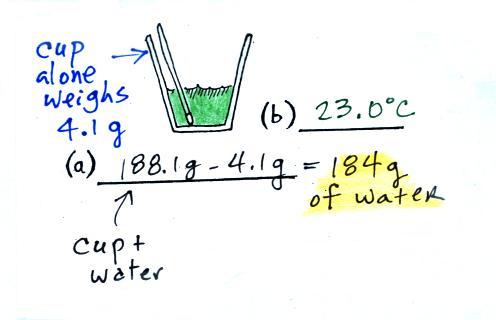 cup
alone
weighs
4.1 g
(b) 23.0°C
(a) 188.1g - 4.1g = 184g
of water
cup +
water